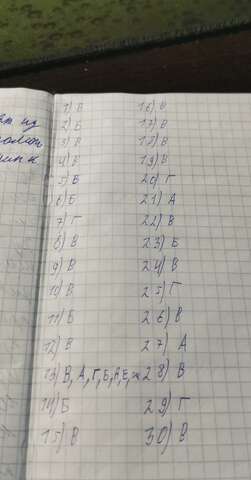 1) В
2) Б
3) В
4) В
5) Б
6) Б
7) Г
8) В
9) В
10) В
11) Б
12) В
13) В, А, Г, Б, Д, Е, Ж
14) Б
15) В
16) В
17) В
18) В
19) В
20) Г
21) А
22) В
23) Б
24) В
25) Г
26) В
27) А
28) В
29) Г
30) В